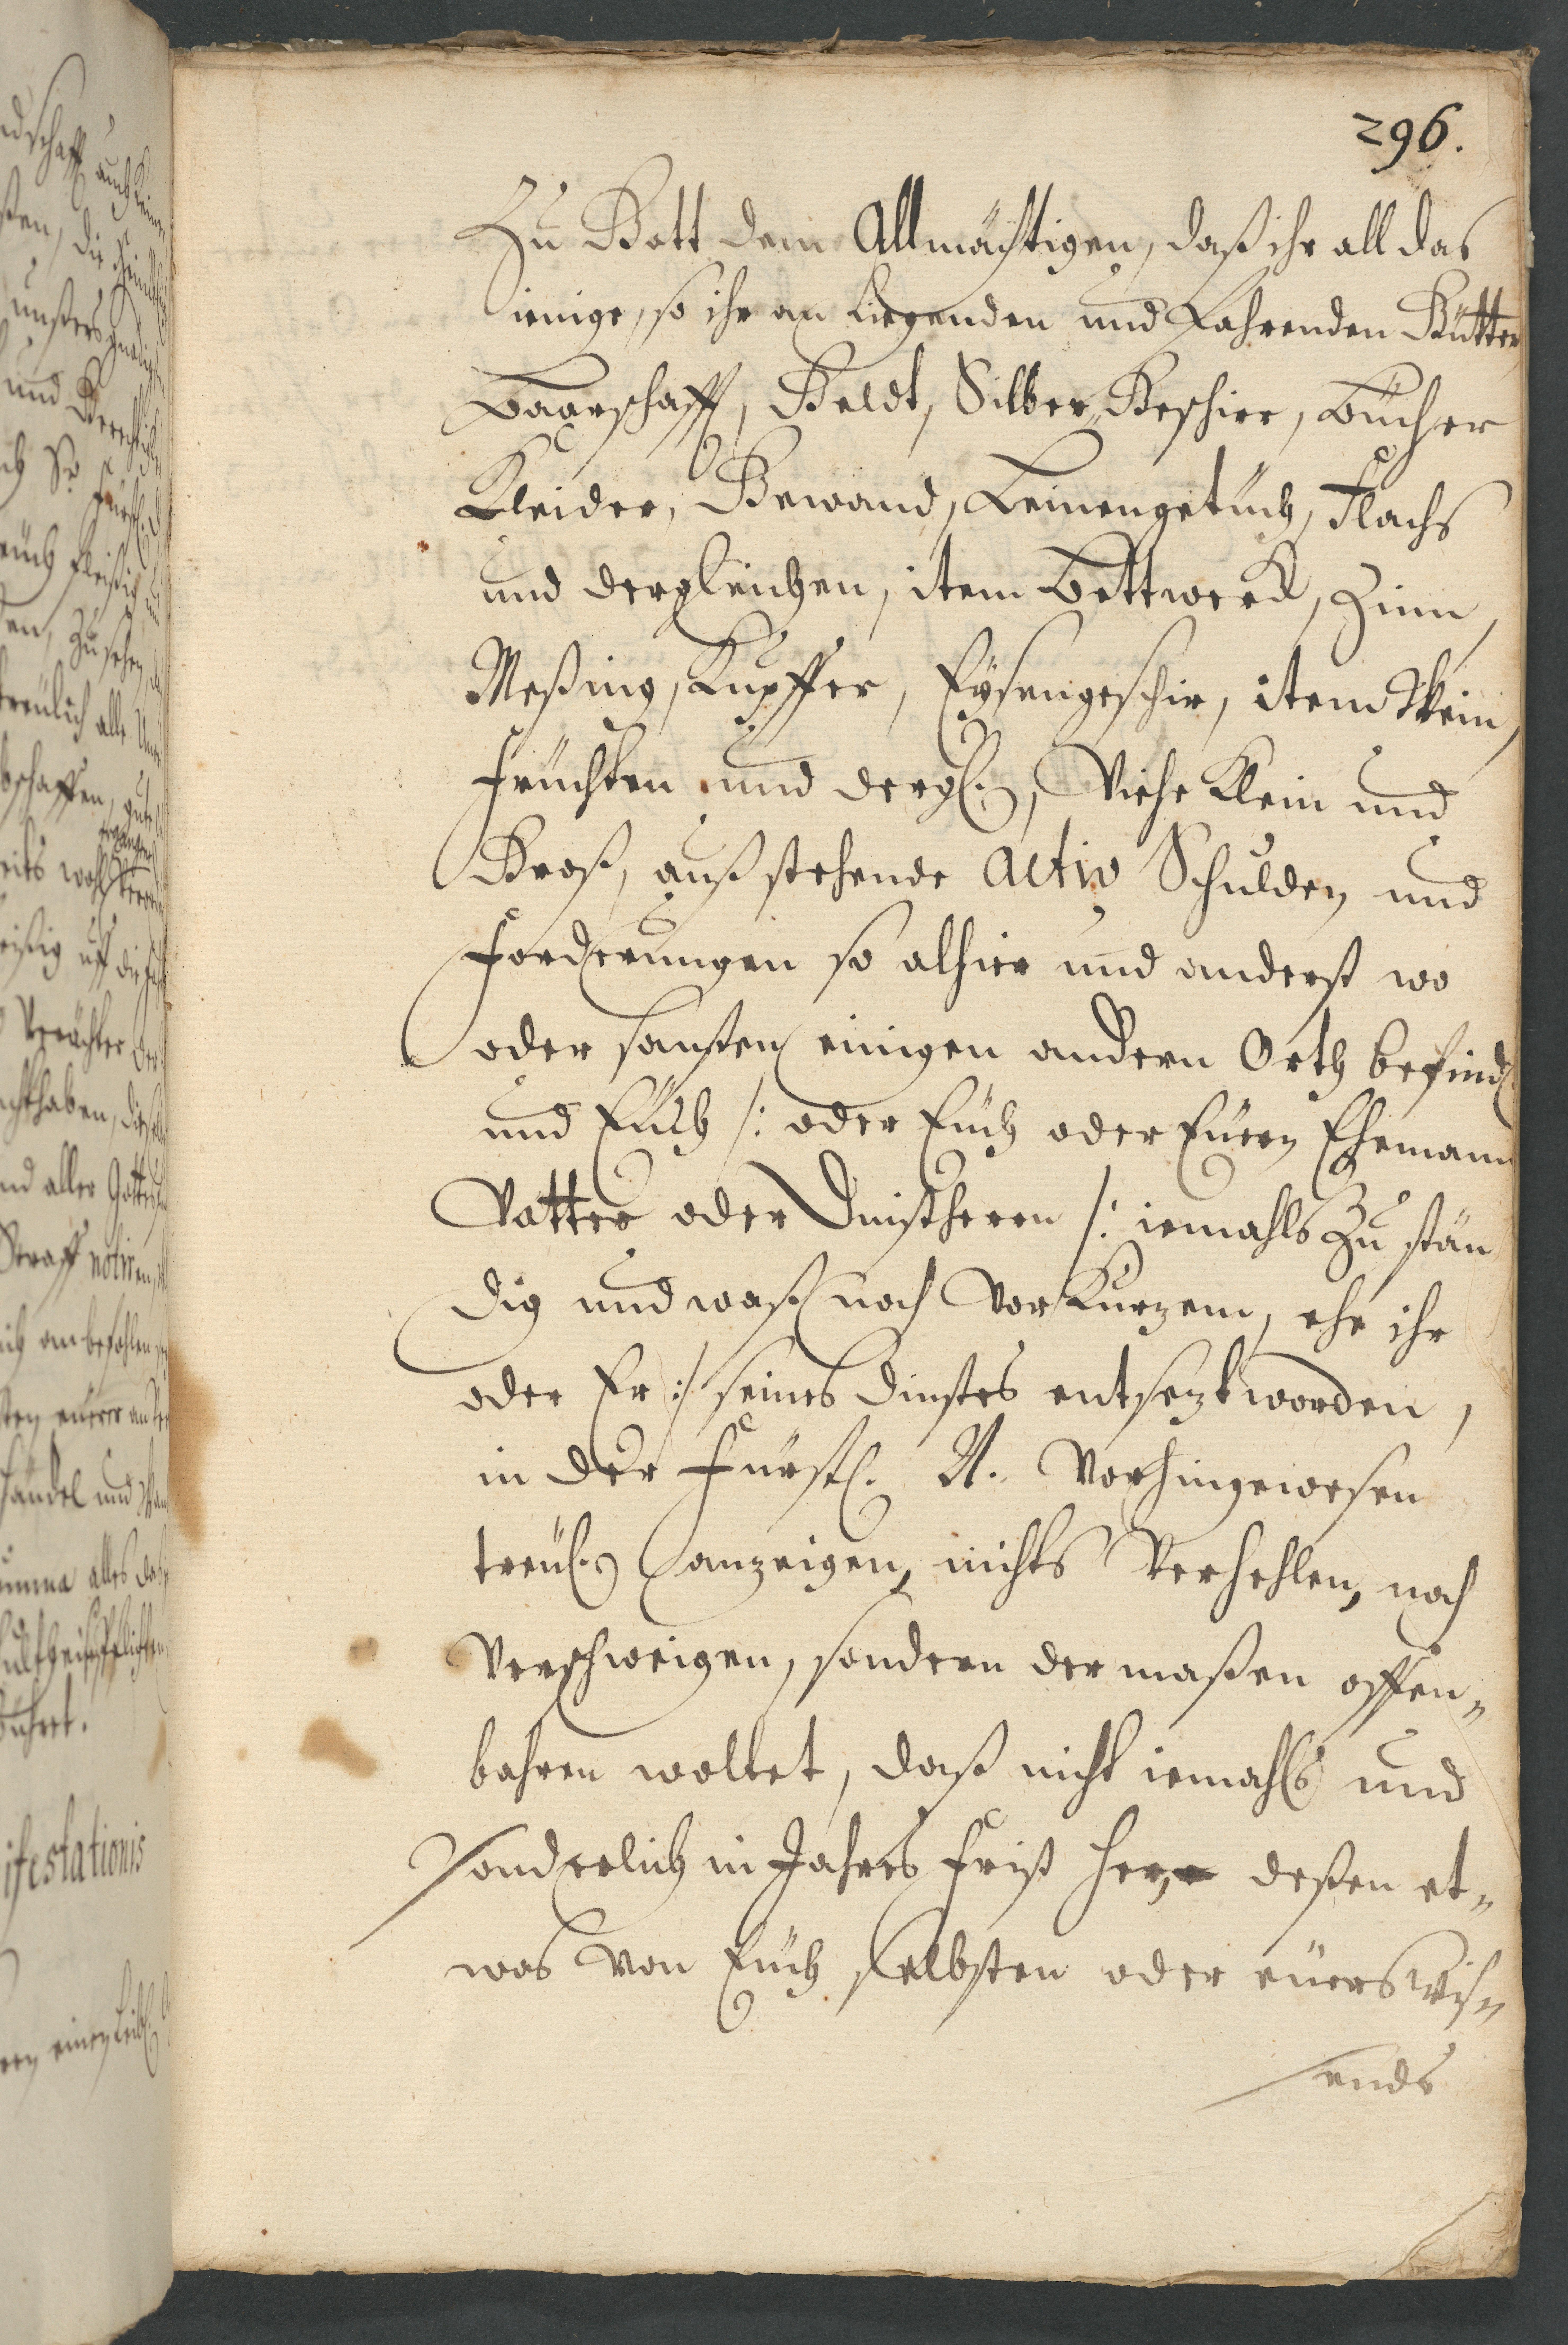 296.
Zu Gott dem Allmächtigen, daß ihr all das
ienige, so ihr an Liegenden und Fahrenden Gütter,
Baarschafft, Geldt, Silber Geschirr, Bücher
Kleider, Gewand, Leinengetüch, Flachs
und dergleichen, item Bettwerck, Zinn,
Meßing, Kupffer, Eysengeschir, item Wein,
Früchten und dergl:, Viehe Klein und
Groß, auß stehende activ Schulden und
Forderungen so alhier und anderst wo
oder sonsten einigen andern Orth befindl:
und Euch /: oder Euch oder Euern Ehemann
Vatter oder Dinstherrn /: iemahls Zu stän
dig und waß noch vor Kurzem, ehe ihr
oder Er :/ seines Dinstes entsezt worden,
in der Fürstl. N. Vorhingewesen
treül: anzeigen, nichts Verhehlen, noch
Verschweigen, sondern der maßen offen„
bahren wollet, daß nicht iemahls und
sonderlich in Jahres Frist her, deßen et„
was von Euch selbsten oder eüers wis„
sends